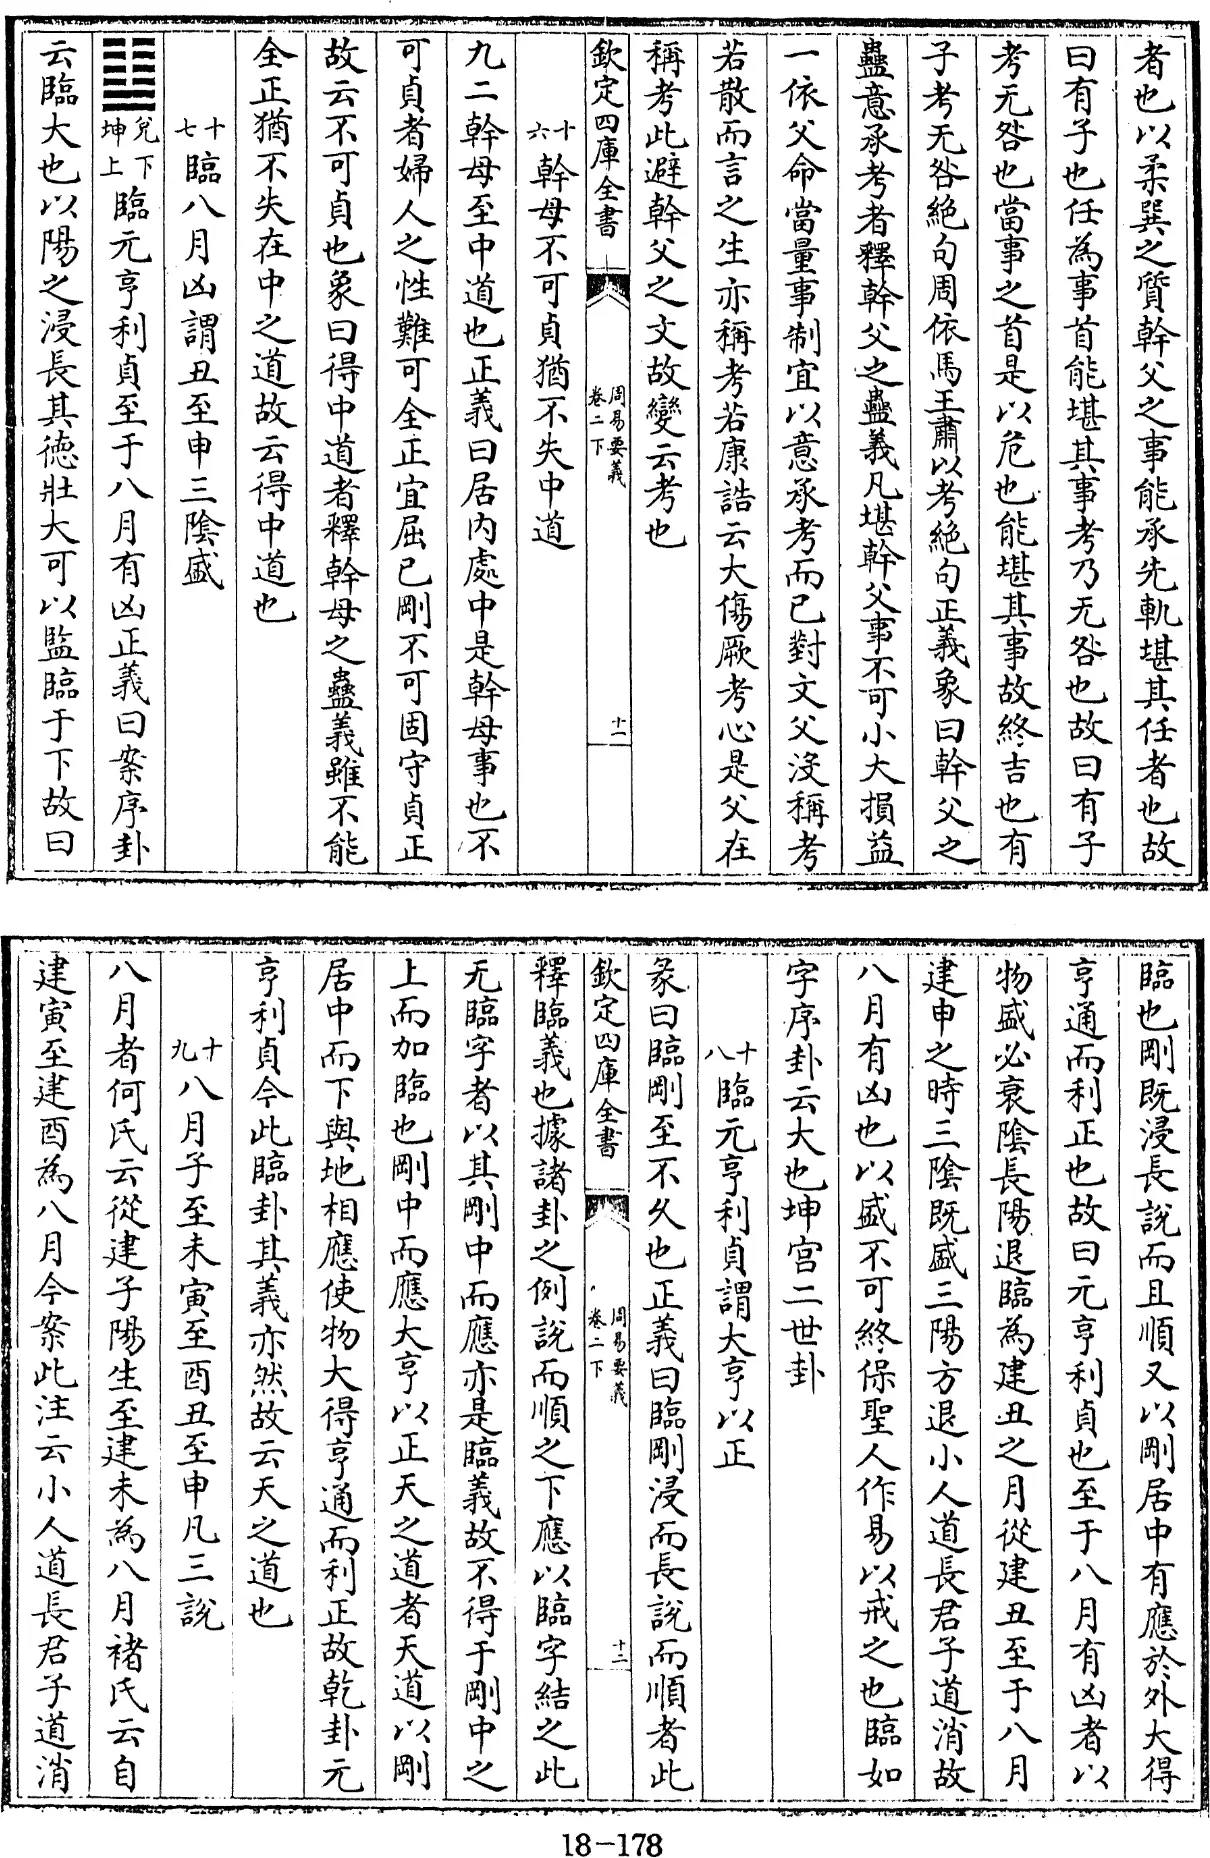 者也以柔巽之質幹父之事能承先軌堪其任者也故
曰有子也任為事首能堪其事考乃无咎也故曰有子
考无咎也當事之首是以危也能堪其事故終吉也有
子考无咎絶句周依馬王肅以考絶句正義象曰幹父之
蠱意承考者釋幹父之蠱義凡堪幹父事不可小大損益
一依父命當量事制宜以意承考而已對文父没稱考
若散而言之生亦稱考若康誥云大傷厥考心是父在
稱考此避幹父之文故變云考也
欽定四庫全書
周易要義
卷二下
十一
十六幹母不可貞猶不失中道
九二幹母至中道也正義曰居内處中是幹母事也不
可貞者婦人之性難可全正宜屈已剛不可固守貞正
故云不可貞也象曰得中道者釋幹母之蠱義雖不能
全正猶不失在中之道故云得中道也
十七臨八月凶謂丑至申三陰盛
䷒兌下坤上臨元亨利貞至于八月有凶正義曰案序卦
云臨大也以陽之浸長其徳壯大可以監臨于下故曰
臨也剛既浸長説而且順又以剛居中有應於外大得
亨通而利正也故曰元亨利貞也至于八月有凶者以
物盛必衰陰長陽退臨為建丑之月從建丑至于八月
建申之時三陰既盛三陽方退小人道長君子道消故
八月有凶也以盛不可終保聖人作易以戒之也臨如
字序卦云大也坤宫二世卦
十八臨元亨利貞謂大亨以正
彖曰臨剛至不久也正義曰臨剛浸而長説而順者此
欽定四庫全書
周易要義
卷二下
十二
釋臨義也據諸卦之例説而順之下應以臨字結之此
无臨字者以其剛中而應亦是臨義故不得于剛中之
上而加臨也剛中而應大亨以正天之道者天道以剛
居中而下與地相應使物大得亨通而利正故乾卦元
亨利貞今此臨卦其義亦然故云天之道也
十九八月子至未寅至酉丑至申凡三説
八月者何氏云從建子陽生至建未為八月褚氏云自
建寅至建酉為八月今案此注云小人道長君子道消
18-178